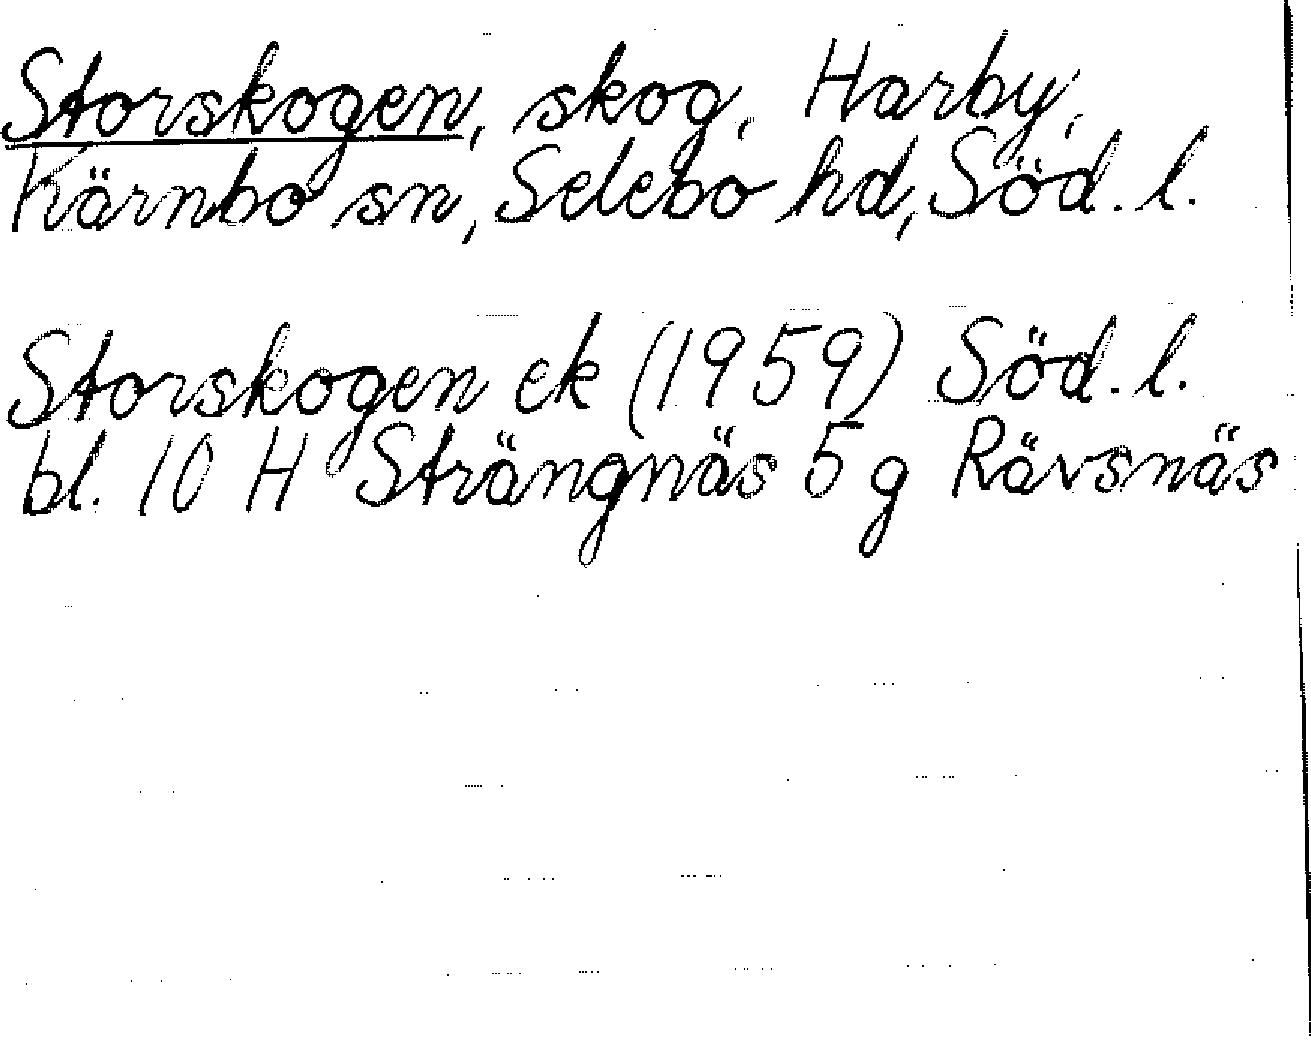 Storskogen, skog, Harby,
Kärnbo sn, Selebo hd, Söd. l.
Storskogen ek (1959) Söd. l.
bl. 10 H Strängnäs 5 g Rävsnäs